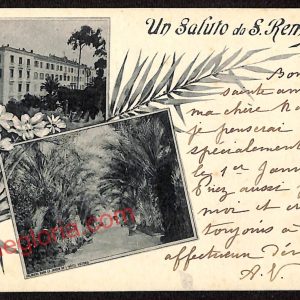 Un Saluto da S. Rem
Bon
sainte an
ma chère N
je penserai
specialement
le 1er Jan
Priez aussi
moi et cr
toujours à
affectueux dé
A. V.
egloria.com